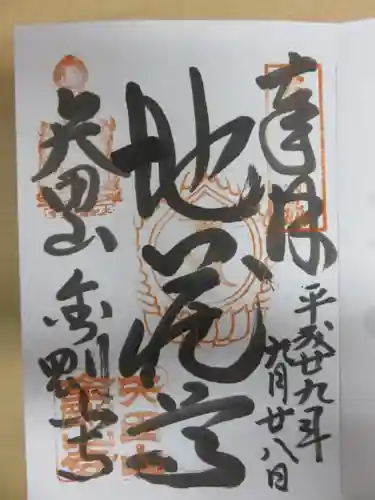 奉拝
平成廿九年
九月廿八日
地蔵尊
矢田山
金剛山寺